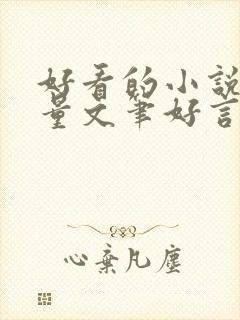 好看的小說
量文筆好言
心棄凡塵